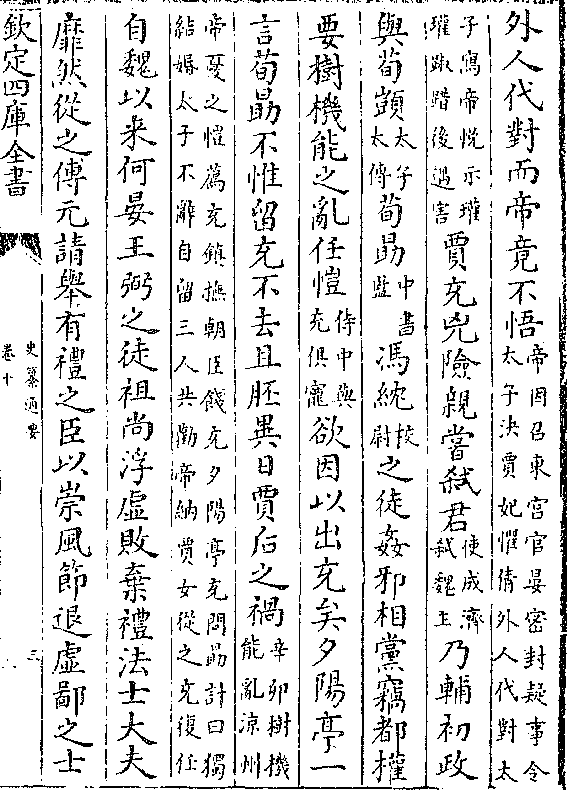 外人代對而帝竟不悟帝因召東宮官晏密封疑事令太子決賈妃懼倩外人代對太
子寫帝悅示瓘瓘踧踖後遇害賈充兇險親嘗弑君使成濟弑魏主乃輔初政
與荀顗太子太傅荀勗中書監馮紞校尉之徒姦邪相黨竊都權
要樹機能之亂任愷侍中與充俱寵欲因以出充矣夕陽亭一
言荀勗不惟留充不去且胚異日賈后之禍辛卯樹機能亂涼州
帝憂之愷薦充鎮撫朝臣餞充夕陽亭充問勗計曰獨結婚太子不辭自留三人共勸帝納賈女從之充復任
自魏以來何晏王弼之徒祖尚浮虛敗棄禮法士大夫
靡然從之傅元請舉有禮之臣以崇風節退虛鄙之士
欽定四庫全書
史纂通要
卷十
三